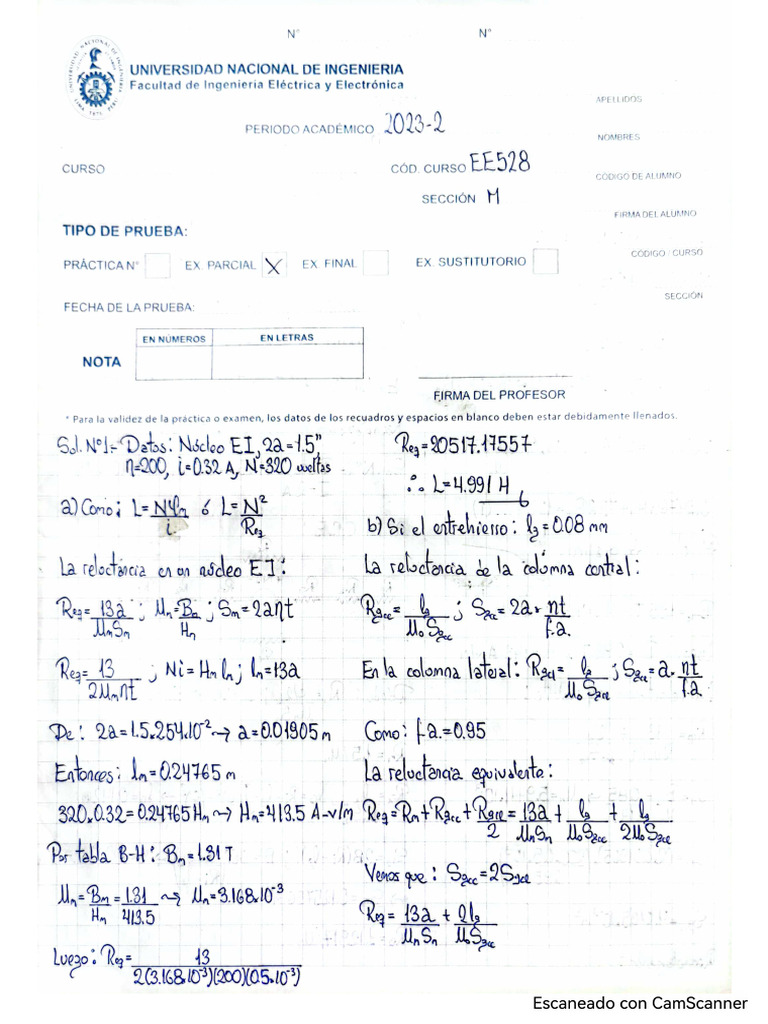 N° N°
UNIVERSIDAD NACIONAL DE INGENIERIA
Facultad de Ingeniería Eléctrica y Electrónica
APELLIDOS
PERIODO ACADÉMICO 2023-2
NOMBRES
CURSO CÓD. CURSO EE528
CÓDIGO DE ALUMNO
SECCIÓN M
FIRMA DEL ALUMNO
TIPO DE PRUEBA:
CÓDIGO / CURSO
PRÁCTICA N° EX. PARCIAL X EX. FINAL EX. SUSTITUTORIO
SECCIÓN
FECHA DE LA PRUEBA:
NOTA EN NÚMEROS EN LETRAS
FIRMA DEL PROFESOR
* Para la validez de la práctica o examen, los datos de los recuadros y espacios en blanco deben estar debidamente llenados.
Sol. N°1:- Datos: Núcleo EI, 2a=1.5",
n=200, i=0.32 A, N=320 vueltas
a) Como: L=Nφm/i ó L=N²/Req
La reluctancia en un núcleo EI:
Req=13a/μmSm; μm=Bm/Hm; Sm=2ant
Req=13/2μmnt; Ni=Hmlm; lm=13a
De: 2a=1.5×2.54×10⁻² → a=0.01905 m
Entonces: lm=0.24765 m
320×0.32=0.24765Hm → Hm=413.5 A-v/m
Por tabla B-H: Bm=1.31 T
μm=Bm/Hm=1.31/413.5 → μm=3.168×10⁻³
Luego: Req=13/2(3.168×10⁻³)(200)(0.5×10⁻³)
Req=20517.17557
∴ L=4.991 H
b) Si el entrehierro: lg=0.08 mm
La reluctancia de la columna central:
Rgcc=lg/μ0Sgcc; Sgcc=2a×nt/f.a.
En la columna lateral: Rgcl=lg/μ0Sgcl; Sgcl=a×nt/f.a
Como: f.a.=0.95
La reluctancia equivalente:
Req=Rm+Rgcc+Rgcl/2=13a/μmSm+lg/μ0Sgcc+lg/2μ0Sgcl
Vemos que: Sgcc=2Sgcl
Req=13a/μmSm+2lg/μ0Sgcc
Escaneado con CamScanner